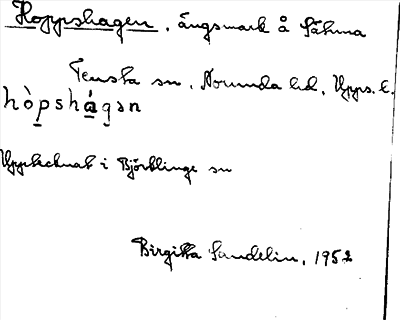 Hoppshagen, ängsmark å Sätuna
Tensta sn, Norunda hd, Upps. l.
hòpshágən
Upptecknat i Björklinge sn
Birgitta Sandelin, 1952